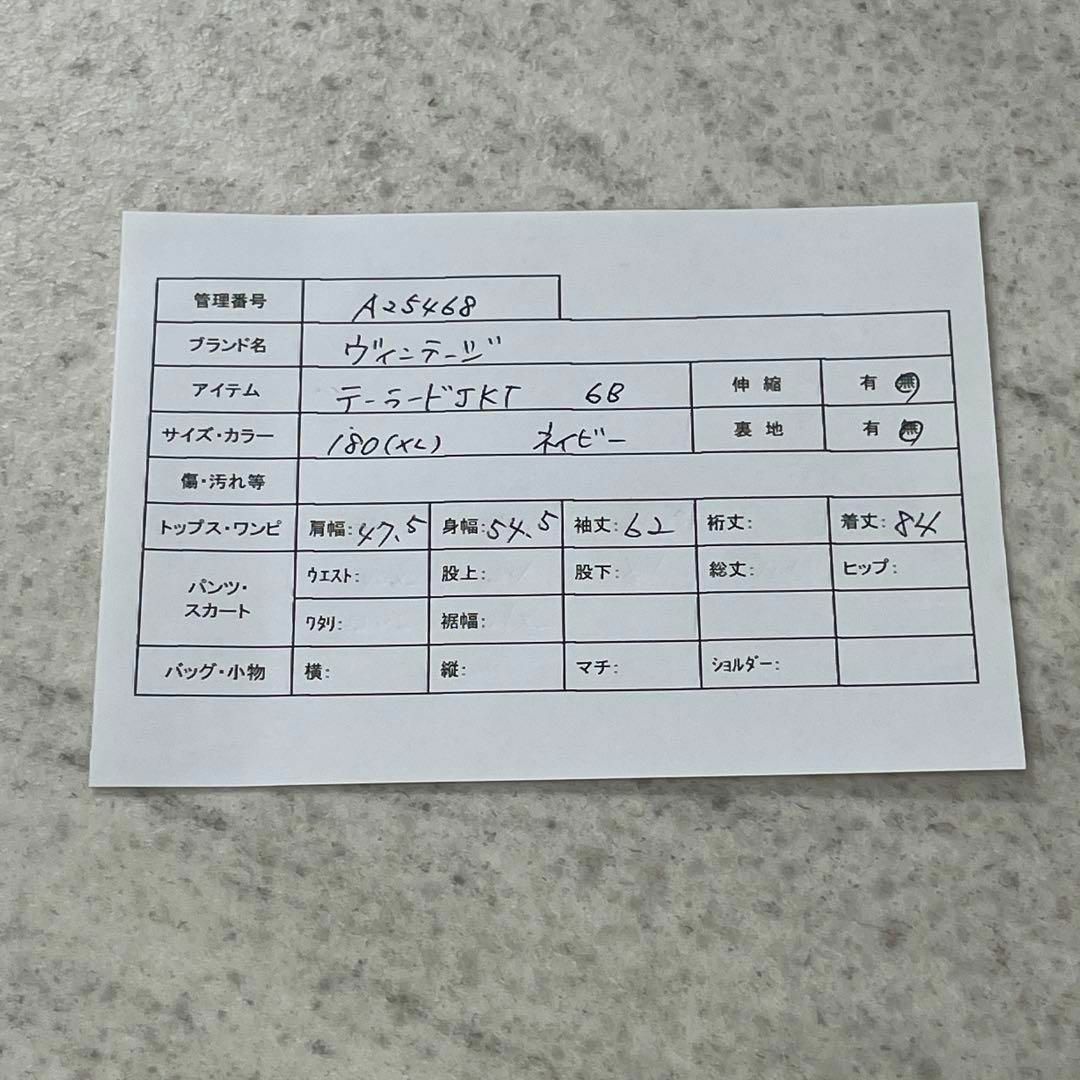 管理番号 A25468
ブランド名 ヴィンテージ
アイテム テーラードJKT 6B 伸縮 有 無
サイズ・カラー 180(XL) ネイビー 裏地 有 無
傷・汚れ等
トップス・ワンピ 肩幅:47.5 身幅:54.5 袖丈:62 裄丈: 着丈:84
パンツ・
スカート
ウエスト: 股上: 股下: 総丈: ヒップ:
ワタリ: 裾幅:
バッグ・小物 横: 縦: マチ: ショルダー: